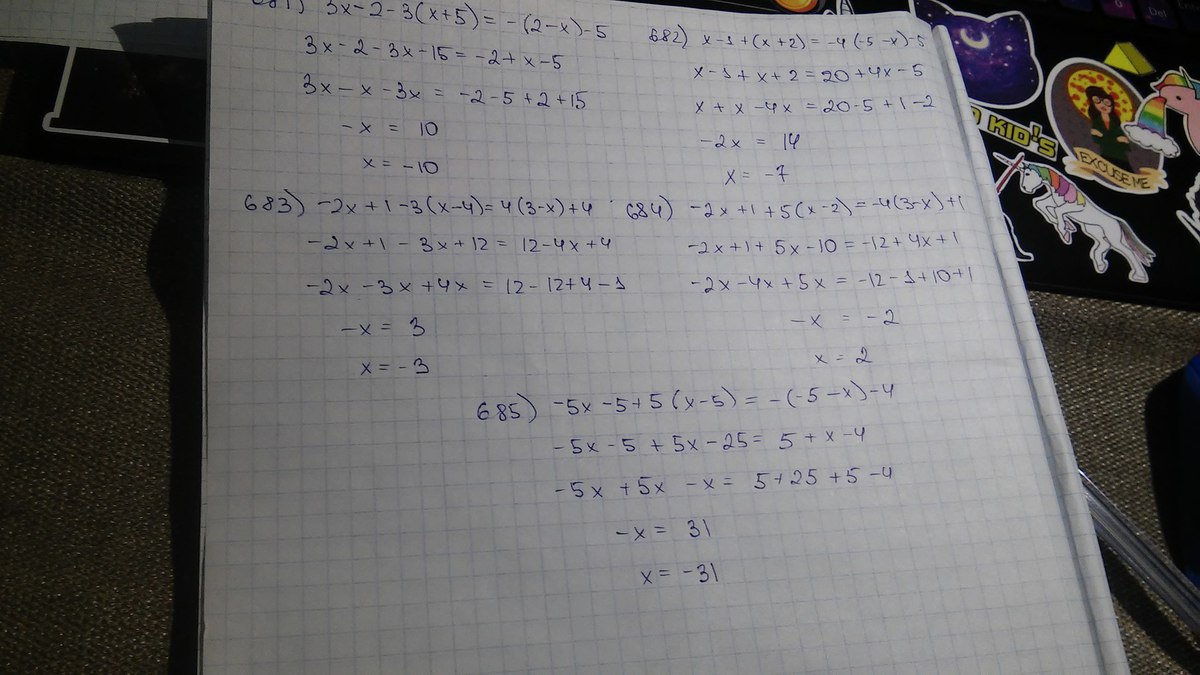 681) 3x-2-3(x+5)= -(2-x)-5
3x-2-3x-15=-2+x-5
3x-x-3x = -2-5+2+15
-x = 10
x = -10
682) x-1+(x+2)=-4(-5-x)-5
x-1+x+2=20+4x-5
x+x-4x=20-5+1-2
-2x = 14
x = -7
683) -2x+1-3(x-4)=4(3-x)+4
-2x+1-3x+12=12-4x+4
-2x-3x+4x=12-12+4-1
-x = 3
x = -3
684) -2x+1+5(x-2)=-4(3-x)+1
-2x+1+5x-10=-12+4x+1
-2x-4x+5x=-12-1+10+1
-x = -2
x = 2
685) -5x-5+5(x-5)=-(-5-x)-4
-5x-5+5x-25=5+x-4
-5x+5x-x=5+25+5-4
-x = 31
x = -31
KID'S
EXCUSE ME
Del